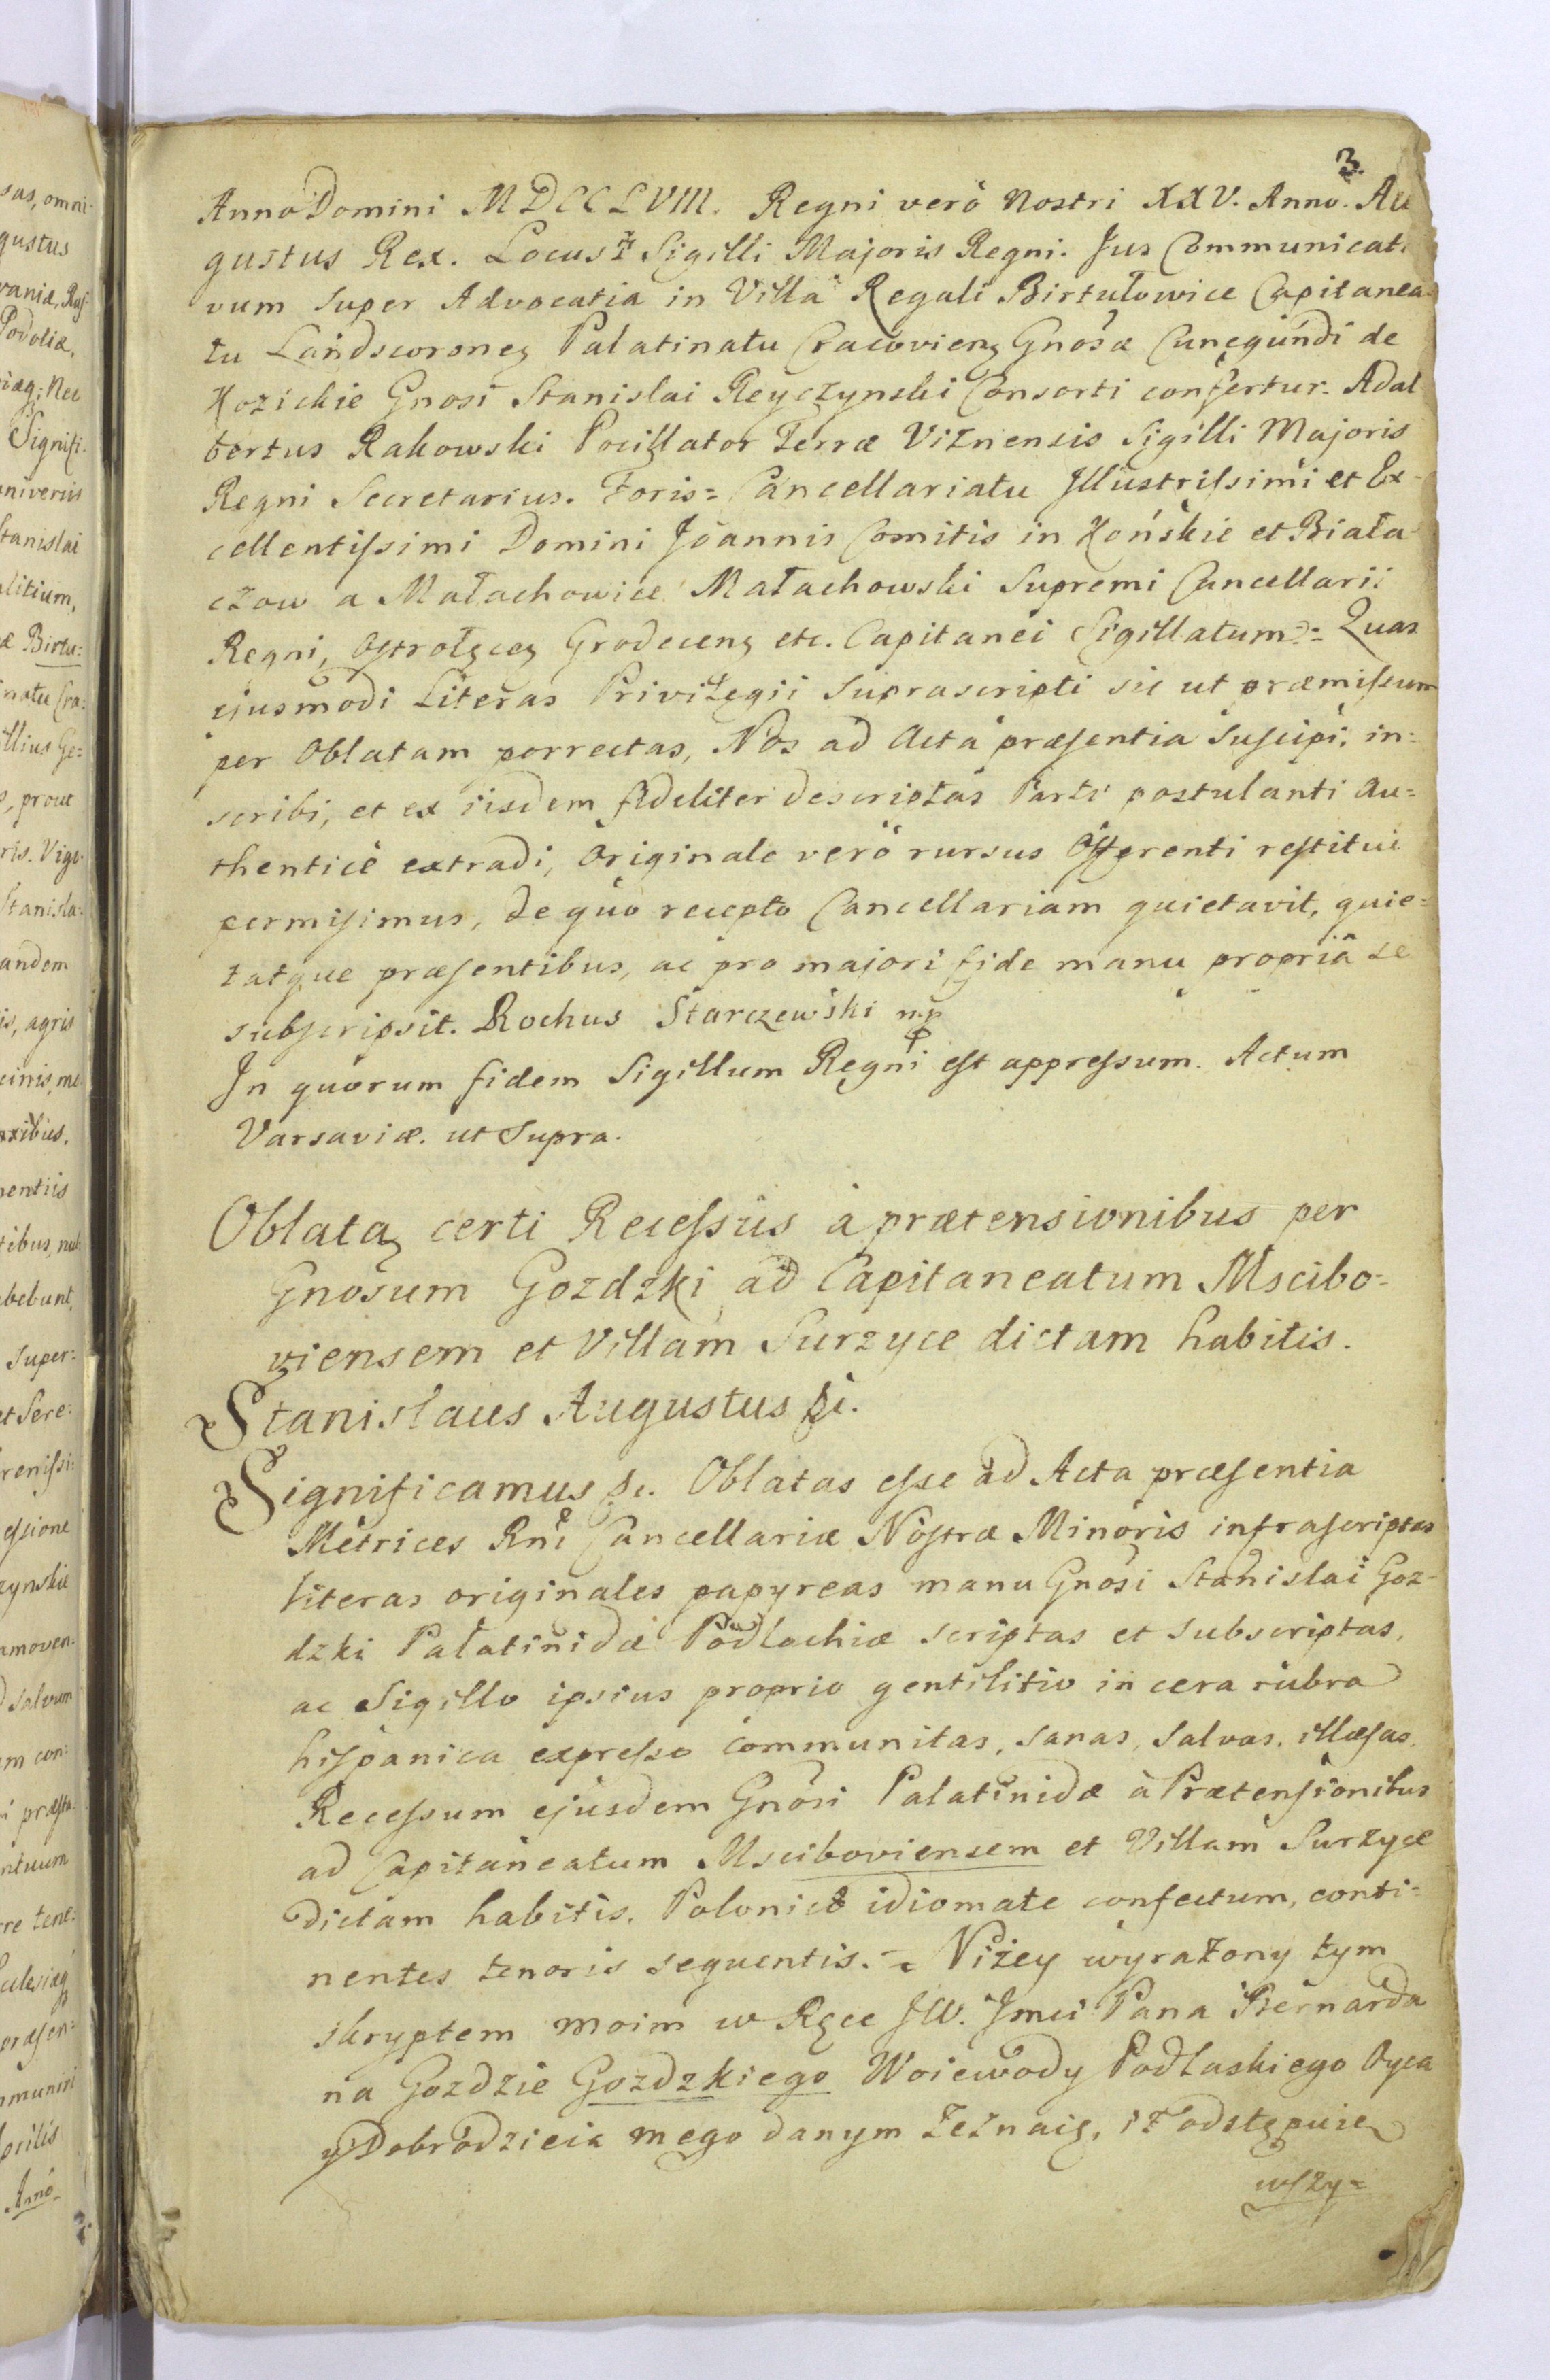 3.
Anno Domini MDCCLVIII. Regni verò Nostri XXV. Anno. Au
gustus Rex. Locus Sigilli Majoris Regni. Jus Communicati
vum super Advocatia in Villa Regali Birtułowice Capitanea
tu Landscorones Palatinatu Cracoviens Gnosæ Cunegundi de
Kozickie Gnosi Stanislai Reyczynski Consorti confertur. Adal
bertus Rakowski Pocillator Terræ Viznensis Sigilli Majoris
Regni Secretarius. Foris= Cancellariatu Jllustrissimi et Ex-
cellentissimi Domini Joannis Comitis in Końskie et Biała-
czow a Małachowice Małachowski Supremi Cancellarii
Regni, Ostrołęces Grodecens etc. Capitanei Sigillatum= Quas
ejusmodi Literas Privilegii supra scripti sic ut præmissum
per Oblatam porrectas, Nos ad Acta præsentia suscipi, in=
scribi, et ex iisdem fideliter descriptas Parti postulanti au=
thenticè extradi, Originale verò rursus Offerenti restitui
permisimus, de quo recepto Cancellariam quietavit, quie=
tatque præsentibus, ac pro majori fide manu propriâ se
subscripsit. Rochus Starczewski mp
In quorum fidem Sigillum Regni est appressum. Actum
Varsaviæ. ut supra.
Oblata certi Recessûs à prætensionibus per
Gnosum Gozdzki ad Capitaneatum Mscibo-
viensem et Villam Surzyce dictam habitis.
Stanislaus Augustus &c.
Significamus &c. Oblatas esse ad Acta præsentia
Metrices Rni Cancellariæ Nostræ Minoris infrascriptas
literas originales papyreas manu Gnosi Stanislai Goz-
dzki Palatinidæ Podlachiæ scriptas et subscriptas,
ac Sigillo ipsius proprio gentilitio in cera rubra
hispanica expresso communitas, sanas, salvas, illæsas,
Recessum ejusdem Gnosi Palatinidæ à Prætensionibus
ad Capitaneatum Msciboviensem et Villam Surzyce
dictam habitis. Polonico idiomate confectum, conti=
nentes tenoris sequentis. = Niżey wyrażony tym
skryptem moim w Ręce JW. Jmci Pana Bernarda
na Gozdzie Gozdzkiego Woiewody Podlaskiego Oyca
y Dobrodzieia mego danym zeznaię, iż odstępuię
wszy=
sas, omni-
gustus
Podoliæ,
Signifi-
universis
Stanislai
Birtu=
natu Cra-
llius Ge=
prout
ris. Vigo-
Stanisla=
andem
is, agris
nentiis
bebunt,
super=
et Sere=
renissi=
essione
zynskie
amoven-
salvum
m con=
i præsta-
ntuum
re tene=
Anno